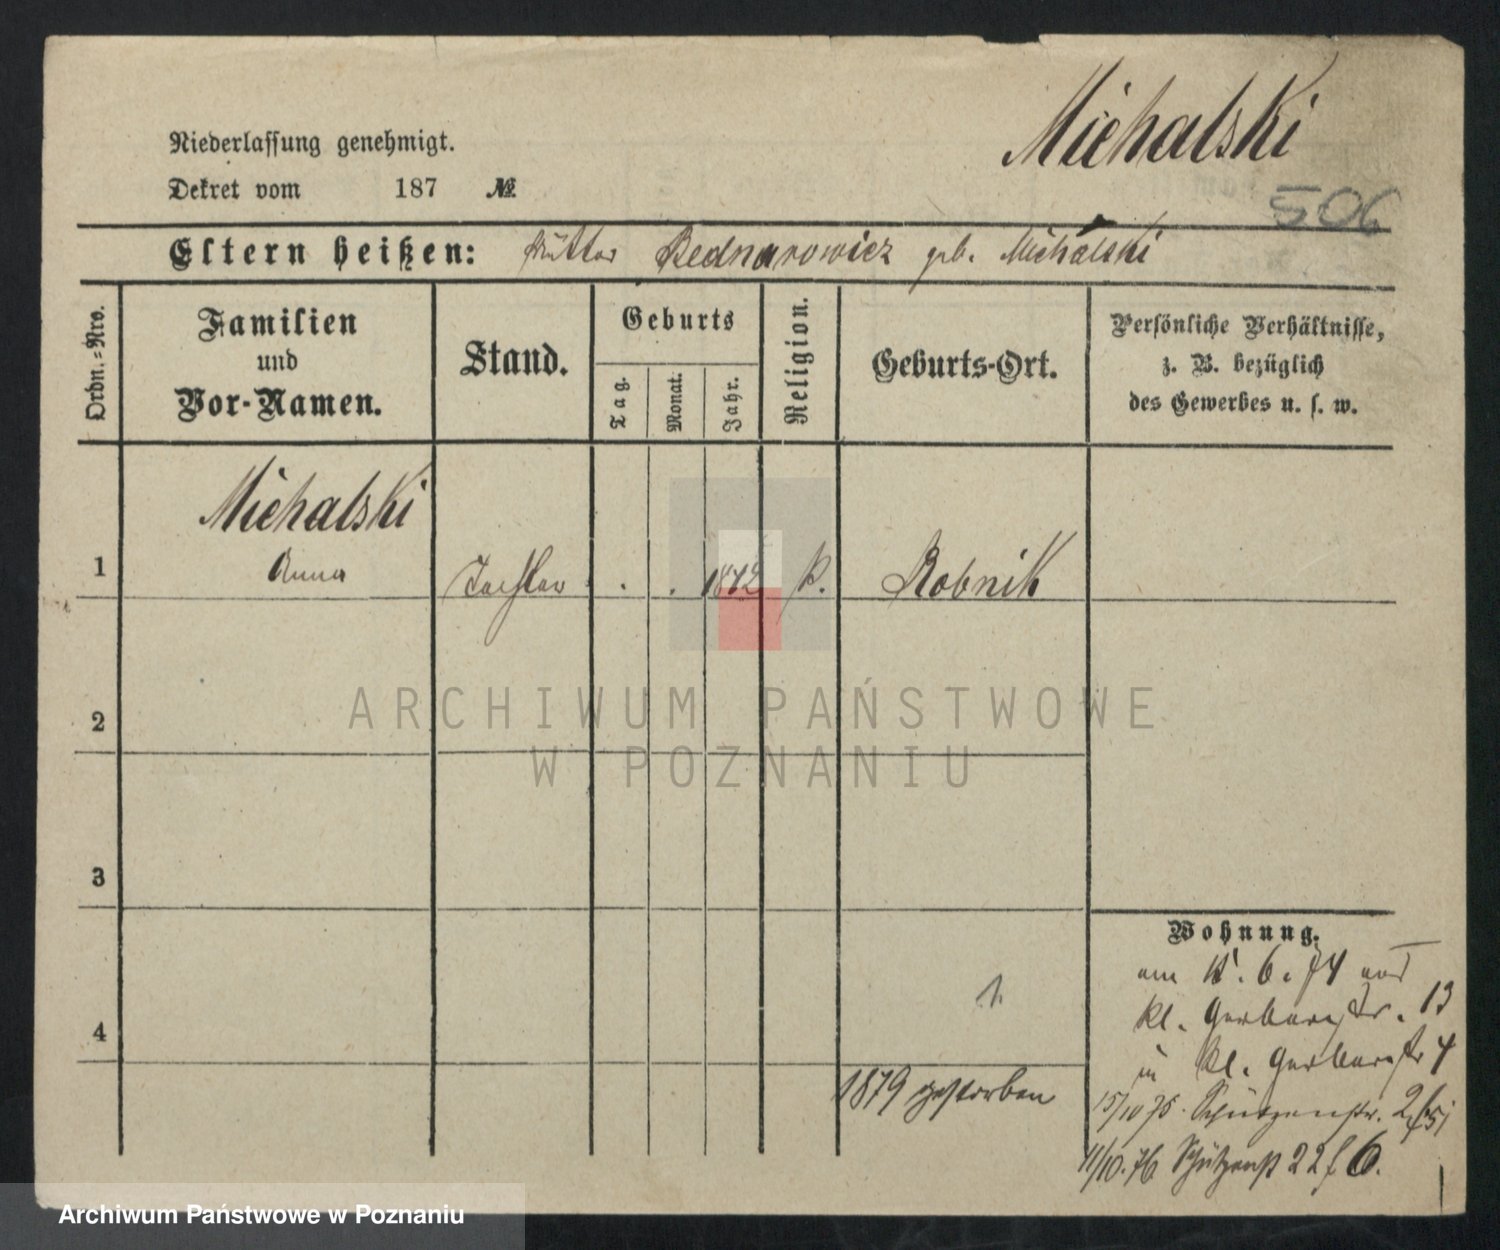 Michalski
Niederlassung genehmigt.
Dekret vom 187 №
506
Eltern heißen: Mutter Bednarowicz geb. Michalski
Ordn.=Nro.
Familien
und
Vor-Namen.
Stand.
Geburts
Tag.
Monat.
Jahr.
Religion.
Geburts-Ort.
Persönliche Verhältnisse,
z. B. bezüglich
des Gewerbes u. s. w.
Michalski
1 Anna Tochter . . 1872 k. Robnik
2
3
4
Wohnung.
am 6. 74 aus
kl. Gerberstr. 13
in kl. Gerberstr 4
15/10 75. Schützenstr.
11/10. 76 Schützenst 22 6.
1.
1879 gestorben
ARCHIWUM PAŃSTWOWE
W POZNANIU
Archiwum Państwowe w Poznaniu